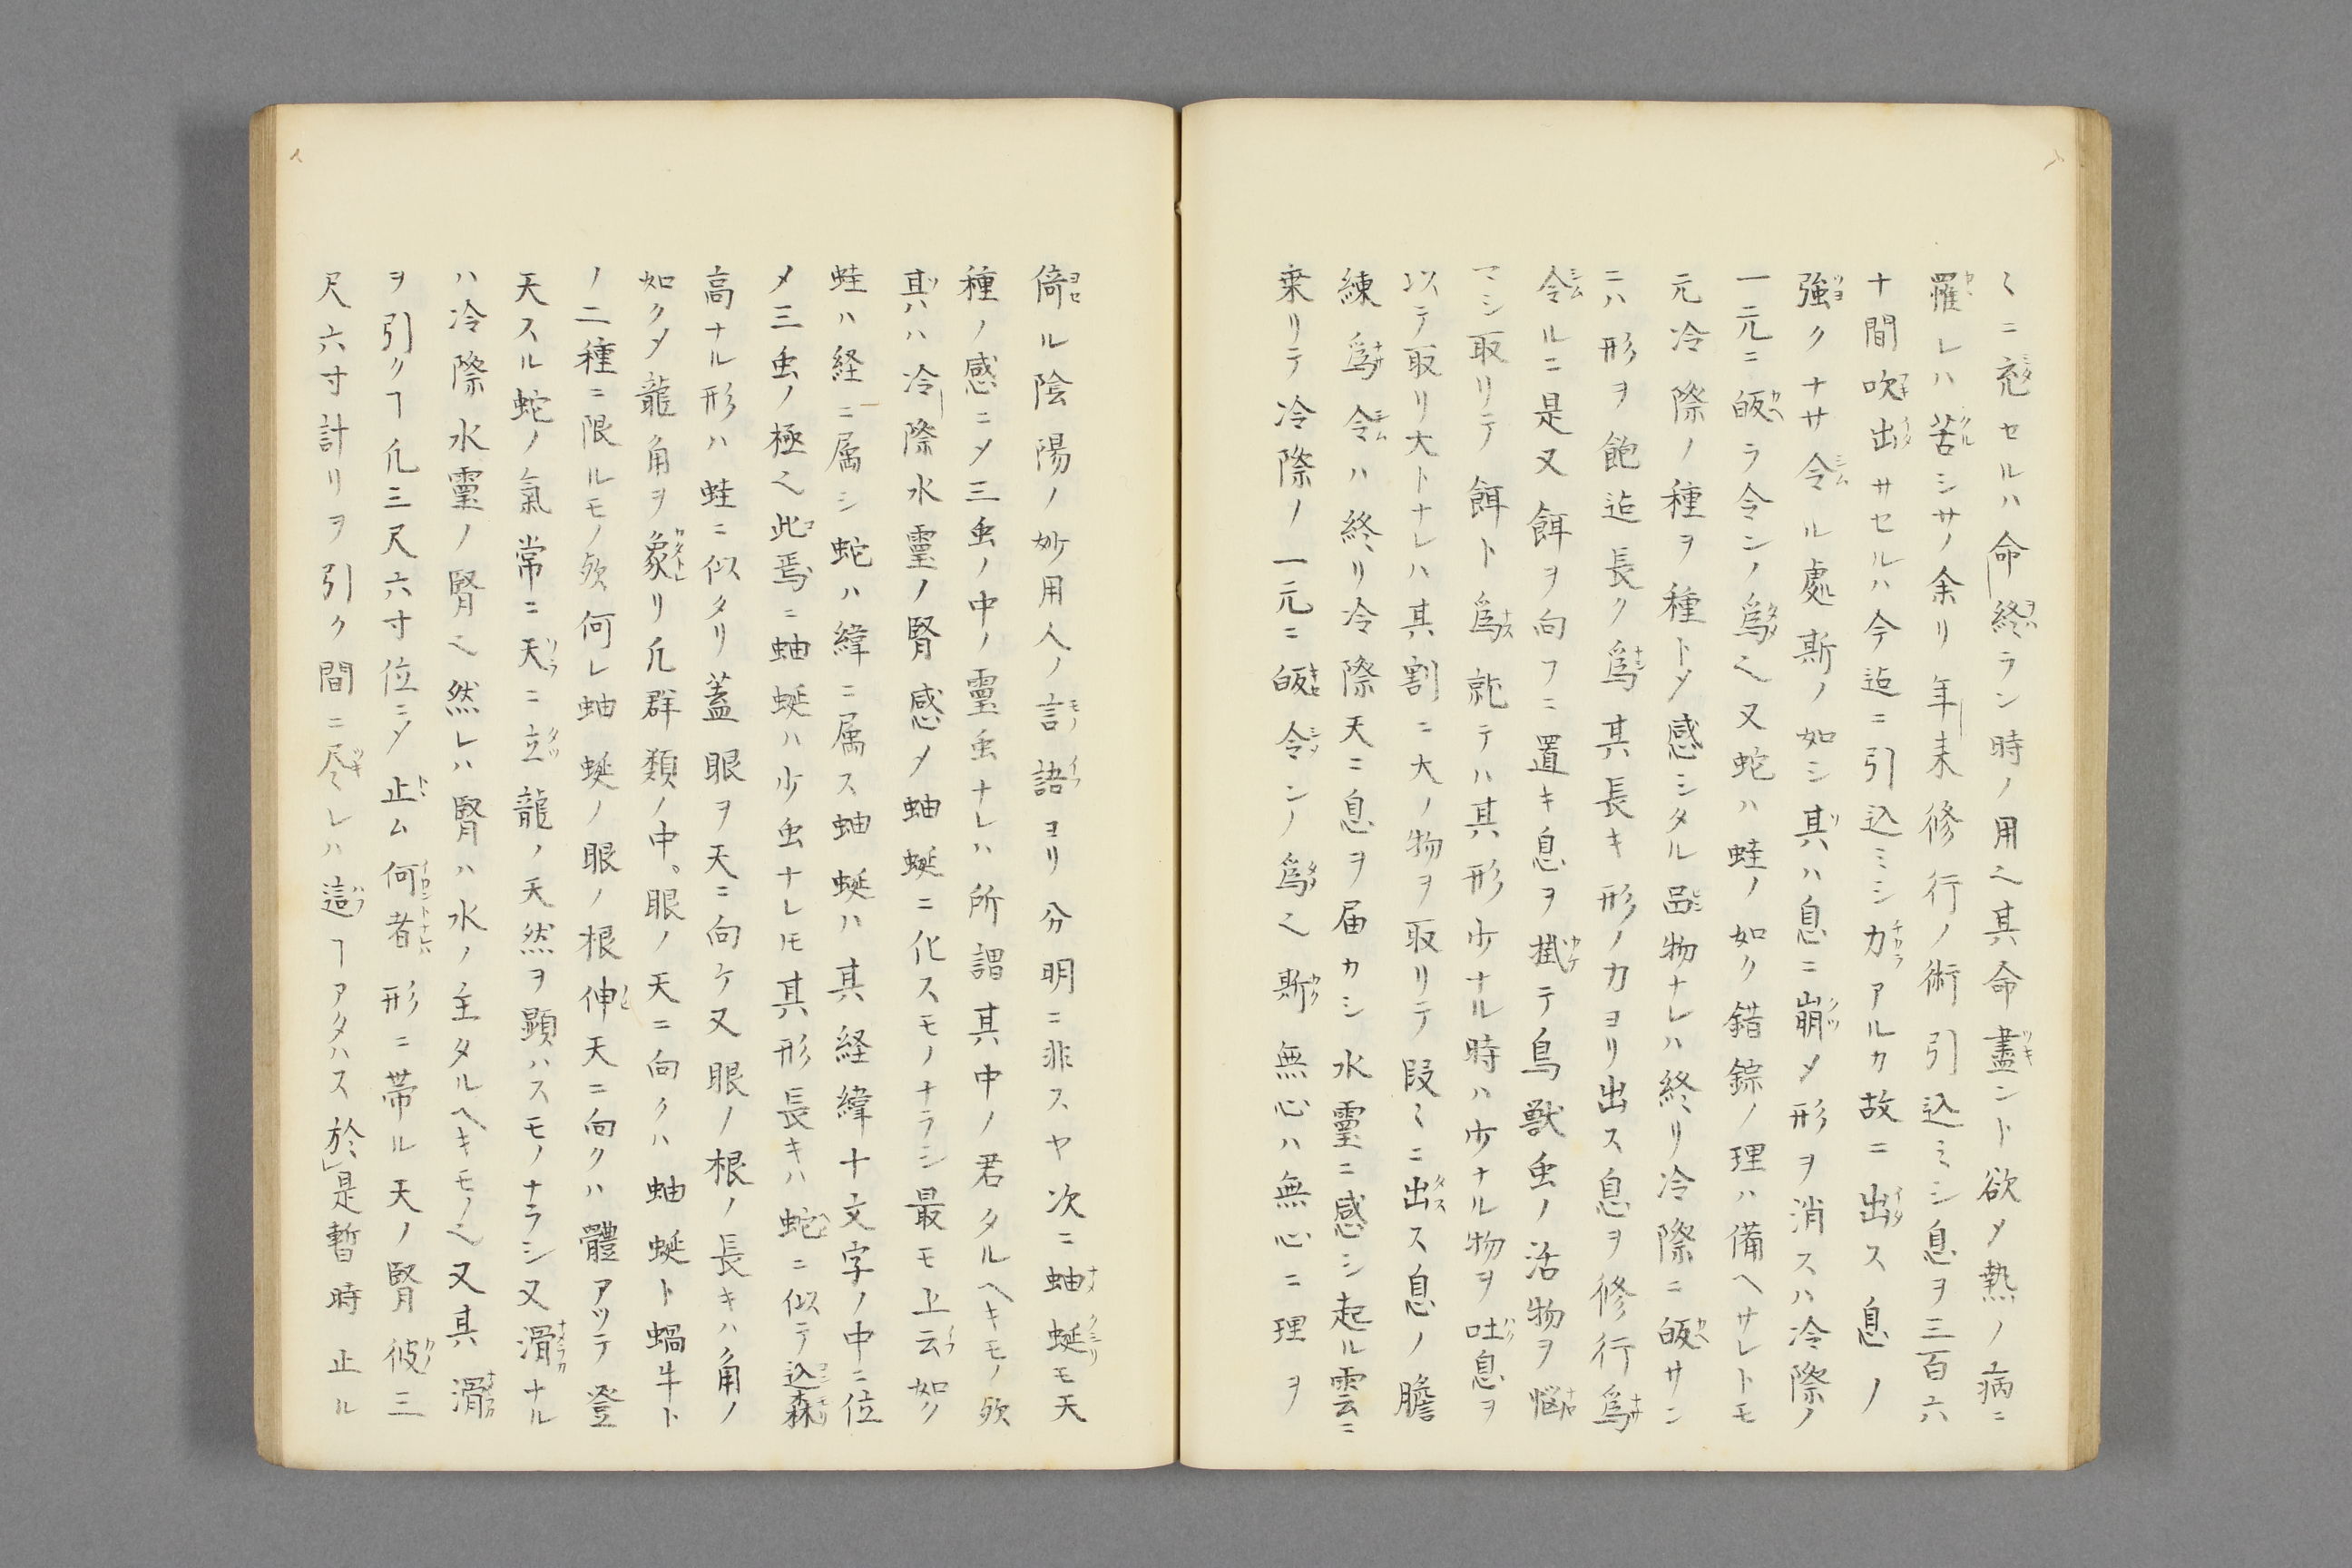 〻ニ充セルハ命終ラン時ノ用之其命盡ント欲メ熱ノ病ニ
罹レハ苦シサノ余リ年来修行ノ術引込ミシ息ヲ三百六
十間吹出サセルハ今迠ニ引込ミシカアルカ故ニ出ス息ノ
強クナサ令ル處斯ノ如シ其ハ息ニ崩メ形ヲ消スハ冷際ノ
一元ニ皈ラ令ンノ為之又蛇ハ蛙ノ如ク錯綜ノ理ハ備ヘサレトモ
元冷際ノ種ヲ種トメ感シタル品物ナレハ終リ冷際ニ皈サン
ニハ形ヲ飽迠長ク為其長キ形ノ力ヨリ出ス息ヲ修行為
令ルニ是又餌ヲ向フニ置キ息ヲ掛テ鳥獣虫ノ活物ヲ悩
マシ取リテ餌ト為就テハ其形少ナル時ハ少ナル物ヲ吐息ヲ
以テ取リ大トナレハ其割ニ大ノ物ヲ取リテ段〻ニ出ス息ノ膽
練為令ハ終リ冷際天ニ息ヲ届カシ水霊ニ感シ起ル雲ニ
乗リテ冷際ノ一元ニ皈令ンノ為之斯無心ハ無心ニ理ヲ
倚ル陰陽ノ妙用人ノ言語ヨリ分明ニ非スヤ次ニ蚰蜒モ天
種ノ感ニメ三虫ノ中ノ霊虫ナレハ所謂其中ノ君タルヘキモノ欤
其ハ冷際水霊ノ腎感メ蚰蜒ニ化スモノナラシ最モ上云如ク
蛙ハ経ニ属シ蛇ハ緯ニ属ス蚰蜒ハ其経緯十文字ノ中ニ位
メ三虫ノ極之此焉ニ蚰蜒ハ少虫ナレ𪜈其形長キハ蛇ニ似テ込森
高ナル形ハ蛙ニ似タリ蓋眼ヲ天ニ向ケ又眼ノ根ノ長キハ角ノ
如クメ龍角ヲ象リ凡群類ノ中、眼ノ天ニ向クハ蚰蜒ト蝸牛ト
ノ二種ニ限ルモノ欤何レ蚰蜒ノ眼ノ根伸天ニ向クハ體アッテ登
天スル蛇ノ氣常ニ天ニ立龍ノ天然ヲ顕ハスモノナラシ又滑ナル
ハ冷際水霊ノ腎之然レハ腎ハ水ノ主タルヘキモノ之又其滑
ヲ引クヿ凡三尺六寸位ニメ止ム何者形ニ帯ル天ノ腎彼三
尺六寸計リヲ引ク間ニ尽レハ這ヿアタハス於是暫時止ル